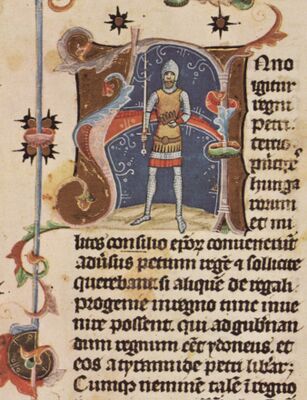 Anno
igitur
regni
Petri
tertio
principes
hunga
rorum
et mi
lites consilio epõr convenerũt
adũsus petrum regẽ ⁊ sollicite
querebant. si aliquẽ de regali
progenie in regno tunc inve
nire possent. qui ad gubnan
dum regnum eẽt ydoneus. et
eos a tyrannide petri libaret.
Cumqz neminẽ talẽ ĩ regno